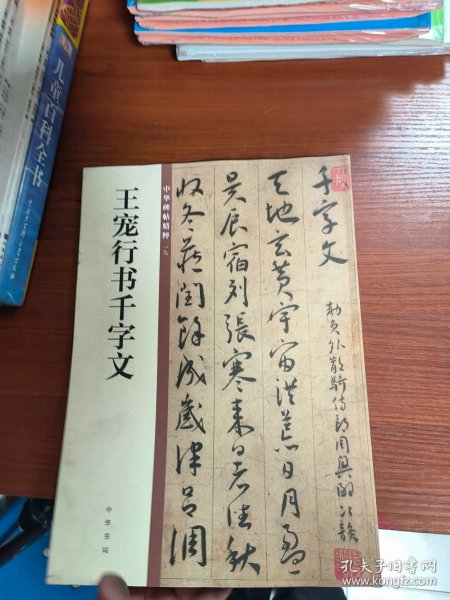 儿童百科全书
王宠行书千字文
中华碑帖精粹 一九
中華書局
千字文
勅員外散騎侍郎周興嗣次韻
天地玄黄宇宙洪荒日月盈
昃辰宿列張寒来暑往秋
收冬藏閏餘成歲律吕調
孔夫子旧书网